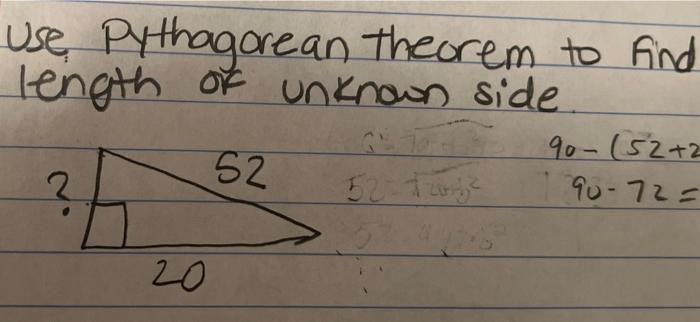 Use Pythagorean theorem to find
length of unknown side
52
90-(52+2
?
90-72=
20